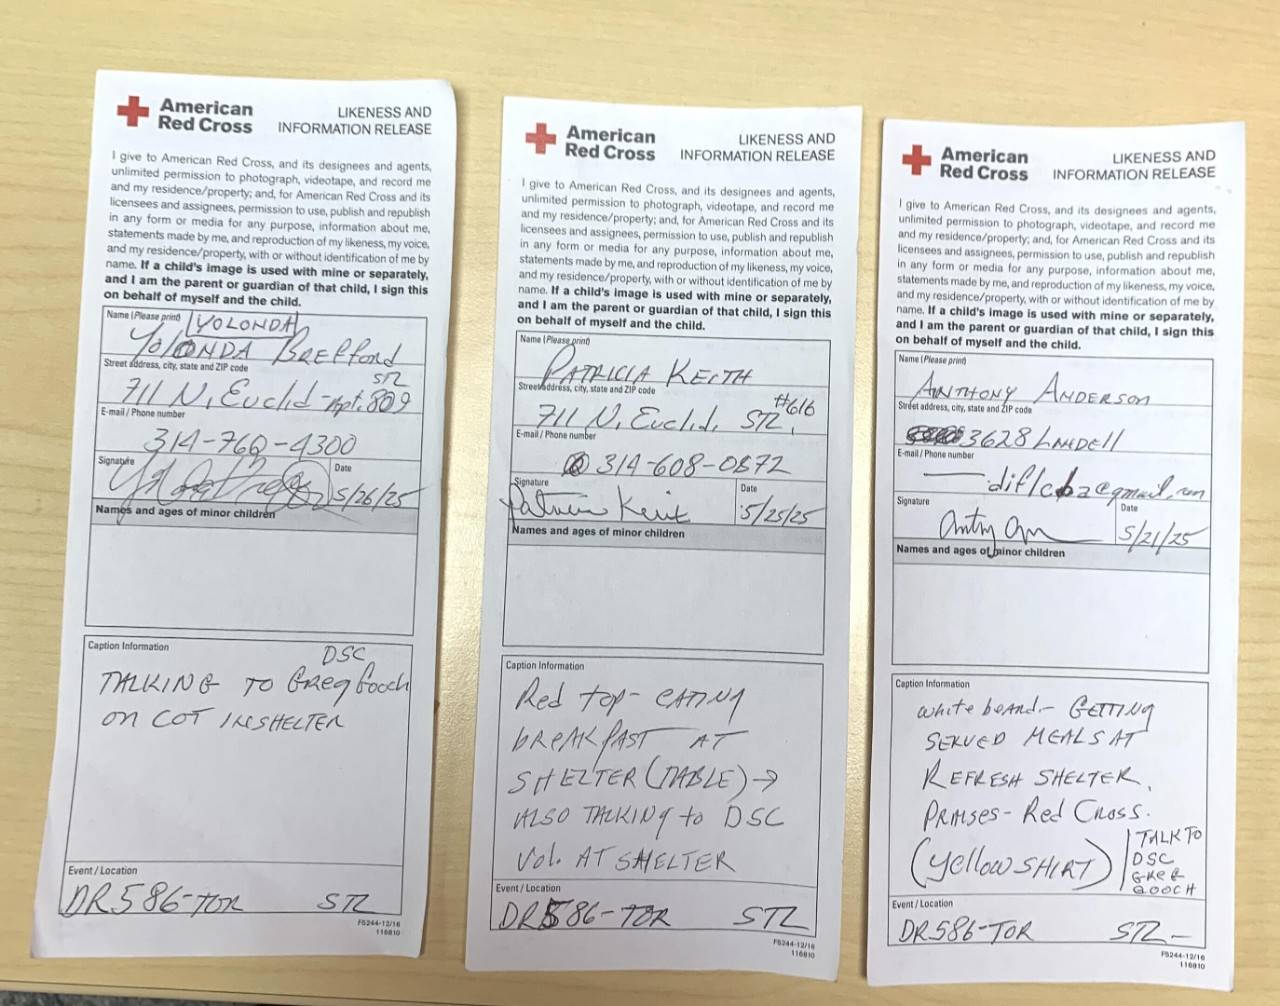 American
Red Cross
LIKENESS AND
INFORMATION RELEASE
I give to American Red Cross, and its designees and agents,
unlimited permission to photograph, videotape, and record me
and my residence/property; and, for American Red Cross and its
licensees and assignees, permission to use, publish and republish
in any form or media for any purpose, information about me,
statements made by me, and reproduction of my likeness, my voice,
and my residence/property, with or without identification of me by
name. If a child's image is used with mine or separately,
and I am the parent or guardian of that child, I sign this
on behalf of myself and the child.
Name (Please print)
YOLONDA
YOLONDA BREFFORD
Street address, city, state and ZIP code
STL
711 N. Euclid - Apt. 809
E-mail / Phone number
314-760-4300
Signature
Date
5/26/25
Names and ages of minor children
Caption Information
DSC
TALKING TO GREG Gooch
ON COT IN SHELTER
Event / Location
DR586-TOR STL
F5244-12/16
116810
American
Red Cross
LIKENESS AND
INFORMATION RELEASE
I give to American Red Cross, and its designees and agents,
unlimited permission to photograph, videotape, and record me
and my residence/property; and, for American Red Cross and its
licensees and assignees, permission to use, publish and republish
in any form or media for any purpose, information about me,
statements made by me, and reproduction of my likeness, my voice,
and my residence/property, with or without identification of me by
name. If a child's image is used with mine or separately,
and I am the parent or guardian of that child, I sign this
on behalf of myself and the child.
Name (Please print)
PATRICIA KEITH
Street address, city, state and ZIP code
#616
711 N. Euclid, STL,
E-mail / Phone number
314-608-0872
Signature
Date
5/25/25
Names and ages of minor children
Caption Information
Red top - EATING
BREAKFAST AT
SHELTER (TABLE) →
ALSO TALKING to DSC
Vol. AT SHELTER
Event / Location
DR586-TOR STL
F5244-12/16
116810
American
Red Cross
LIKENESS AND
INFORMATION RELEASE
I give to American Red Cross, and its designees and agents,
unlimited permission to photograph, videotape, and record me
and my residence/property; and, for American Red Cross and its
licensees and assignees, permission to use, publish and republish
in any form or media for any purpose, information about me,
statements made by me, and reproduction of my likeness, my voice,
and my residence/property, with or without identification of me by
name. If a child's image is used with mine or separately,
and I am the parent or guardian of that child, I sign this
on behalf of myself and the child.
Name (Please print)
ANTHONY ANDERSON
Street address, city, state and ZIP code
3628
E-mail / Phone number
Signature
Date
5/21/25
Names and ages of minor children
Caption Information
white beard - GETTING
SERVED MEALS AT
REFRESH SHELTER.
PRAISES - Red CROSS.
(Yellow SHIRT)
TALK TO
DSC
GREG
GOOCH
Event / Location
DR586-TOR STL -
F5244-12/16
116810